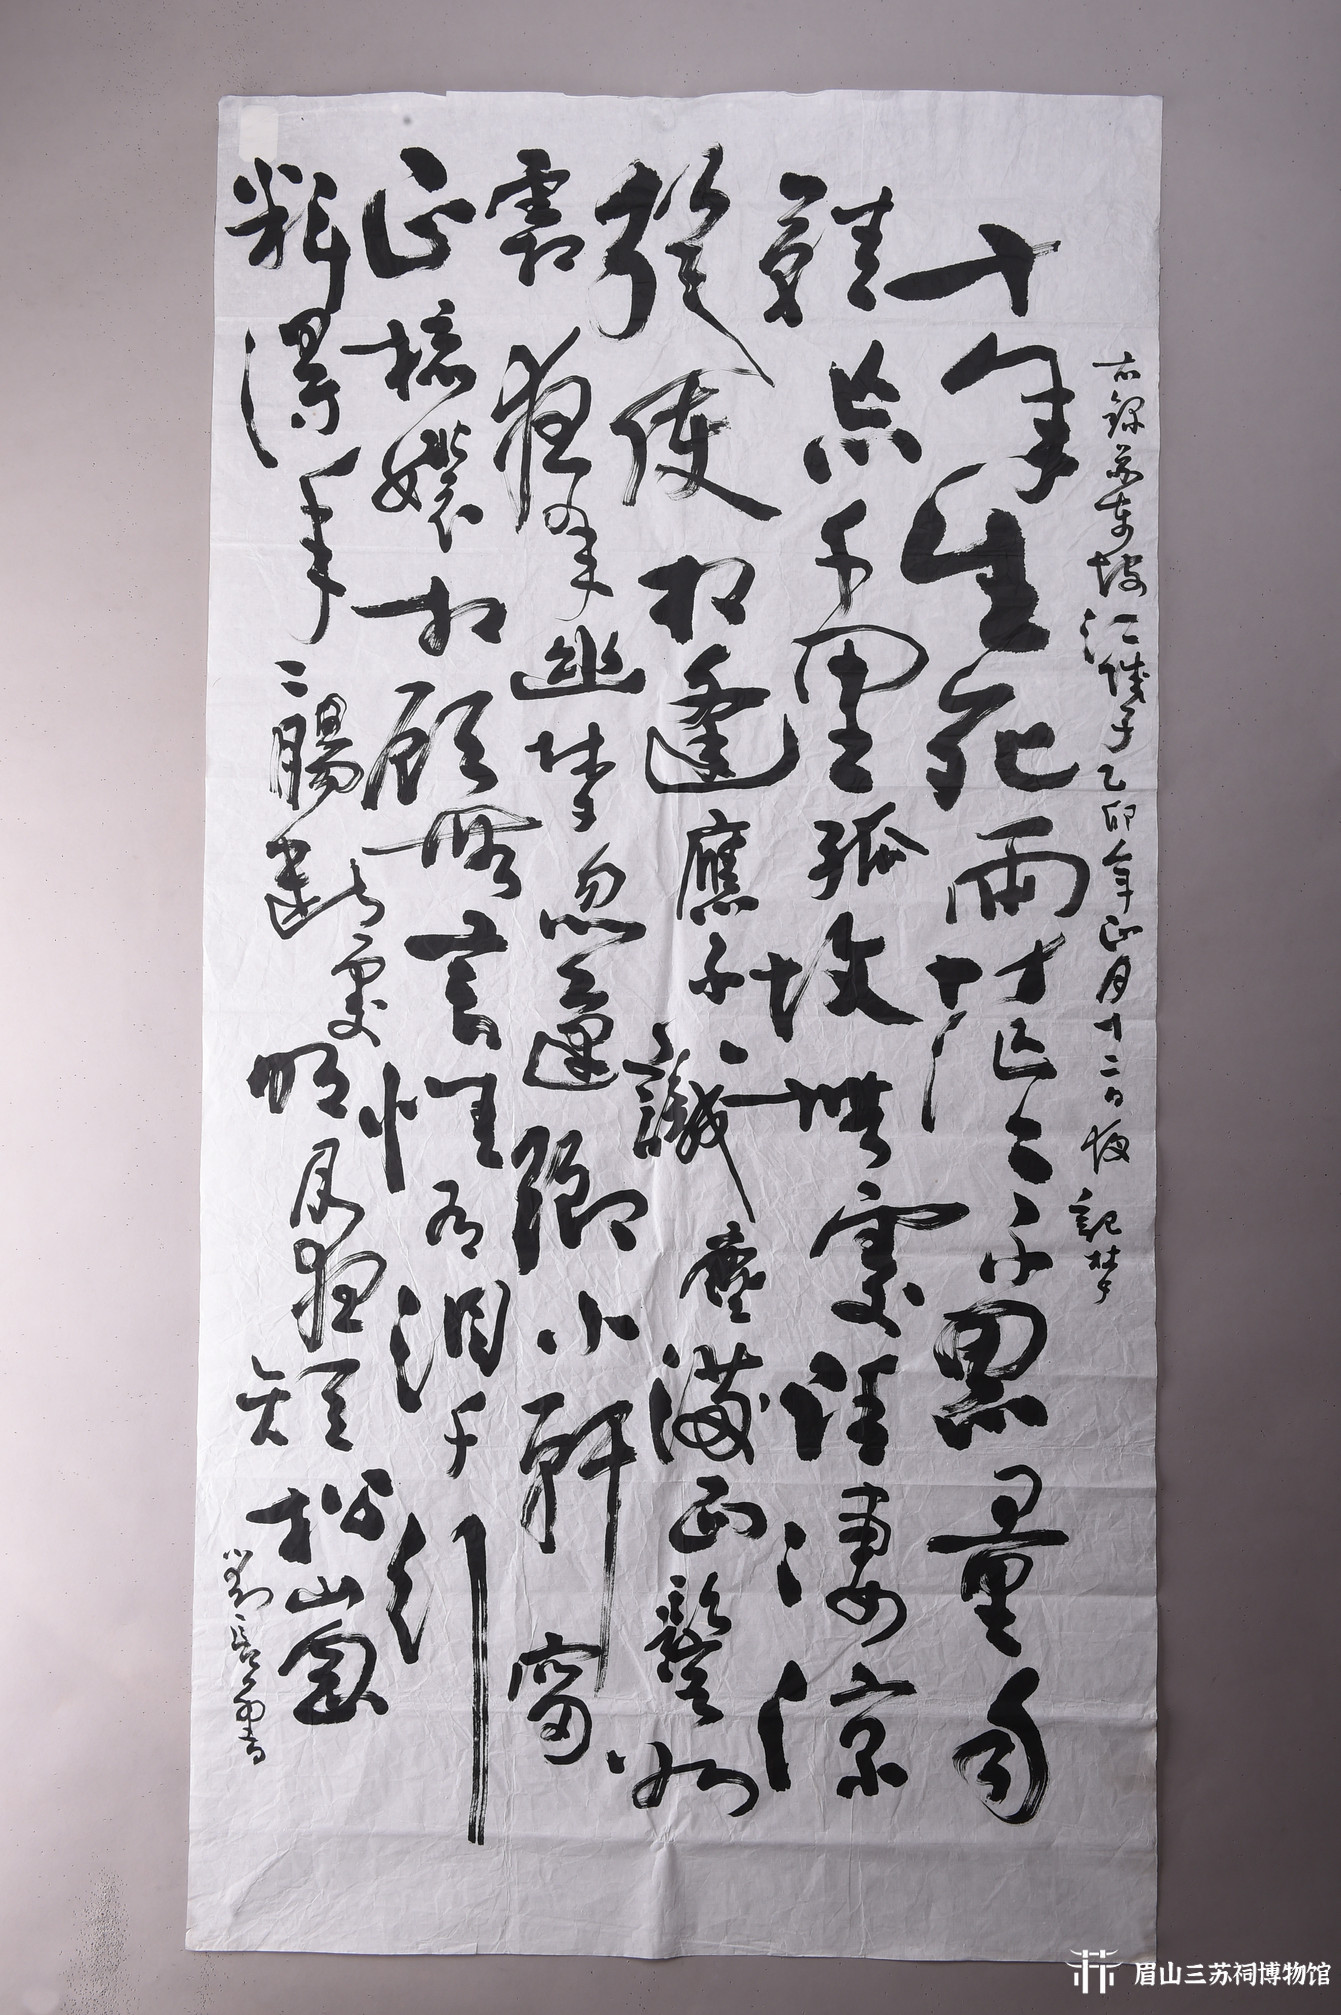 右録蘇東坡江城子乙卯年正月十二日夜記夢
十年生死兩茫〻不思量自
難忘千里孤墳無處話淒涼
縱使相逢應不識塵滿面鬢如
霜夜來幽夢忽還鄉小軒窗
正梳妝相顧無言惟有淚千行
料得年〻腸斷處明月夜短松崗
劉書
眉山三苏祠博物馆